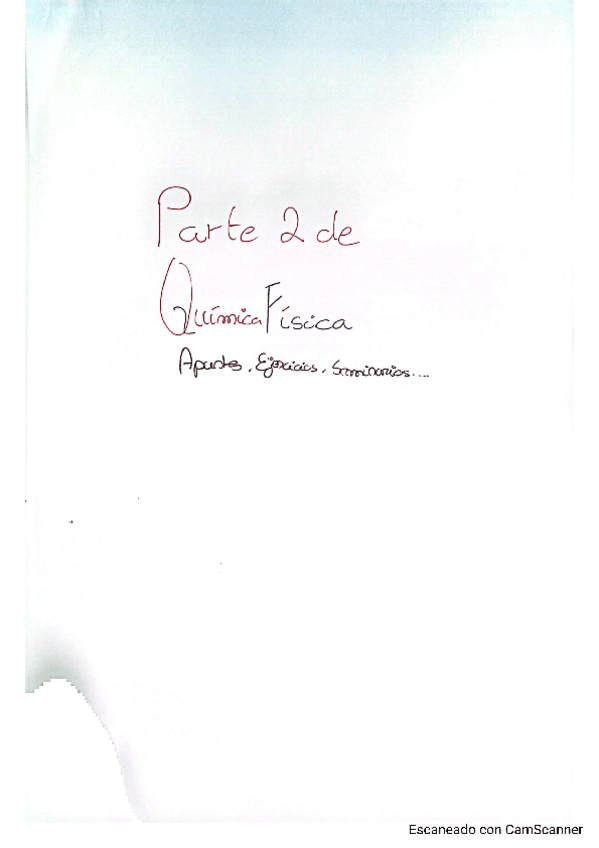 Parte 2 de
Química Física
Apuntes, Ejercicios, Seminarios....
Escaneado con CamScanner